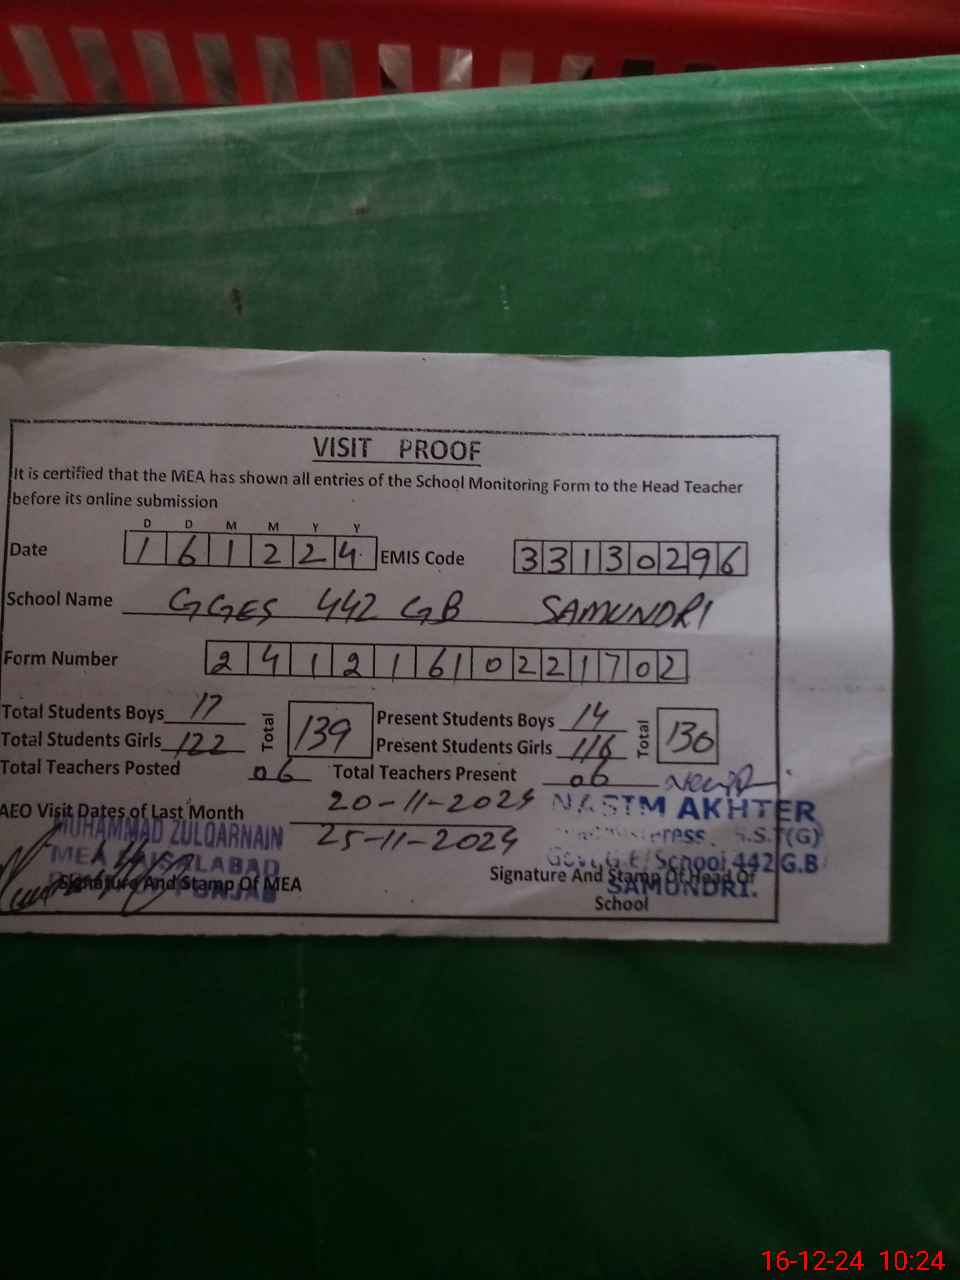 VISIT PROOF
It is certified that the MEA has shown all entries of the School Monitoring Form to the Head Teacher
before its online submission
D D M M Y Y
Date 1 6 1 2 2 4 EMIS Code 3 3 1 3 0 2 9 6
School Name GGES 442 GB SAMUNDRI
Form Number 2 4 1 2 1 6 1 0 2 2 1 7 0 2
Total Students Boys 17 Total 139 Present Students Boys 14 Total 130
Total Students Girls 122 Present Students Girls 116
Total Teachers Posted 06 Total Teachers Present 06
AEO Visit Dates of Last Month 20-11-2024
25-11-2024
MUHAMMAD ZULQARNAIN
MEA FAISALABAD
PUNJAB
Signature And Stamp Of MEA
NASIM AKHTER
S.S.T(G)
Govt. G.E/School 442 G.B
SAMUNDRI.
Signature And Stamp Of Head Of
School
16-12-24 10:24